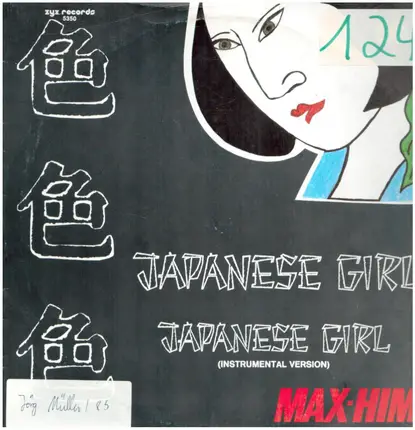 zyx records
5350
124
色
色
色
JAPANESE GIRL
JAPANESE GIRL
(INSTRUMENTAL VERSION)
MAX-HIM
Jörg Müller / 85